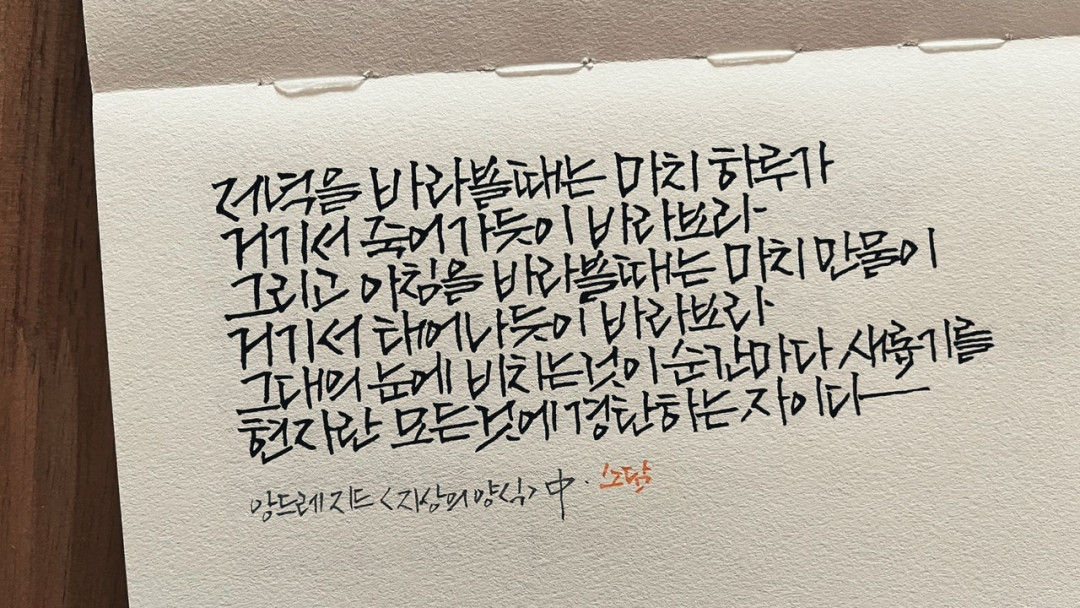 저녁을 바라볼때는 마치 하루가
거기서 죽어가듯이 바라보라
그리고 아침을 바라볼때는 마치 만물이
거기서 태어나듯이 바라보라
그대의 눈에 비치는것이 순간마다 새롭기를
현자란 모든것에 경탄하는 자이다
앙드레 지드 <지상의 양식> 中.